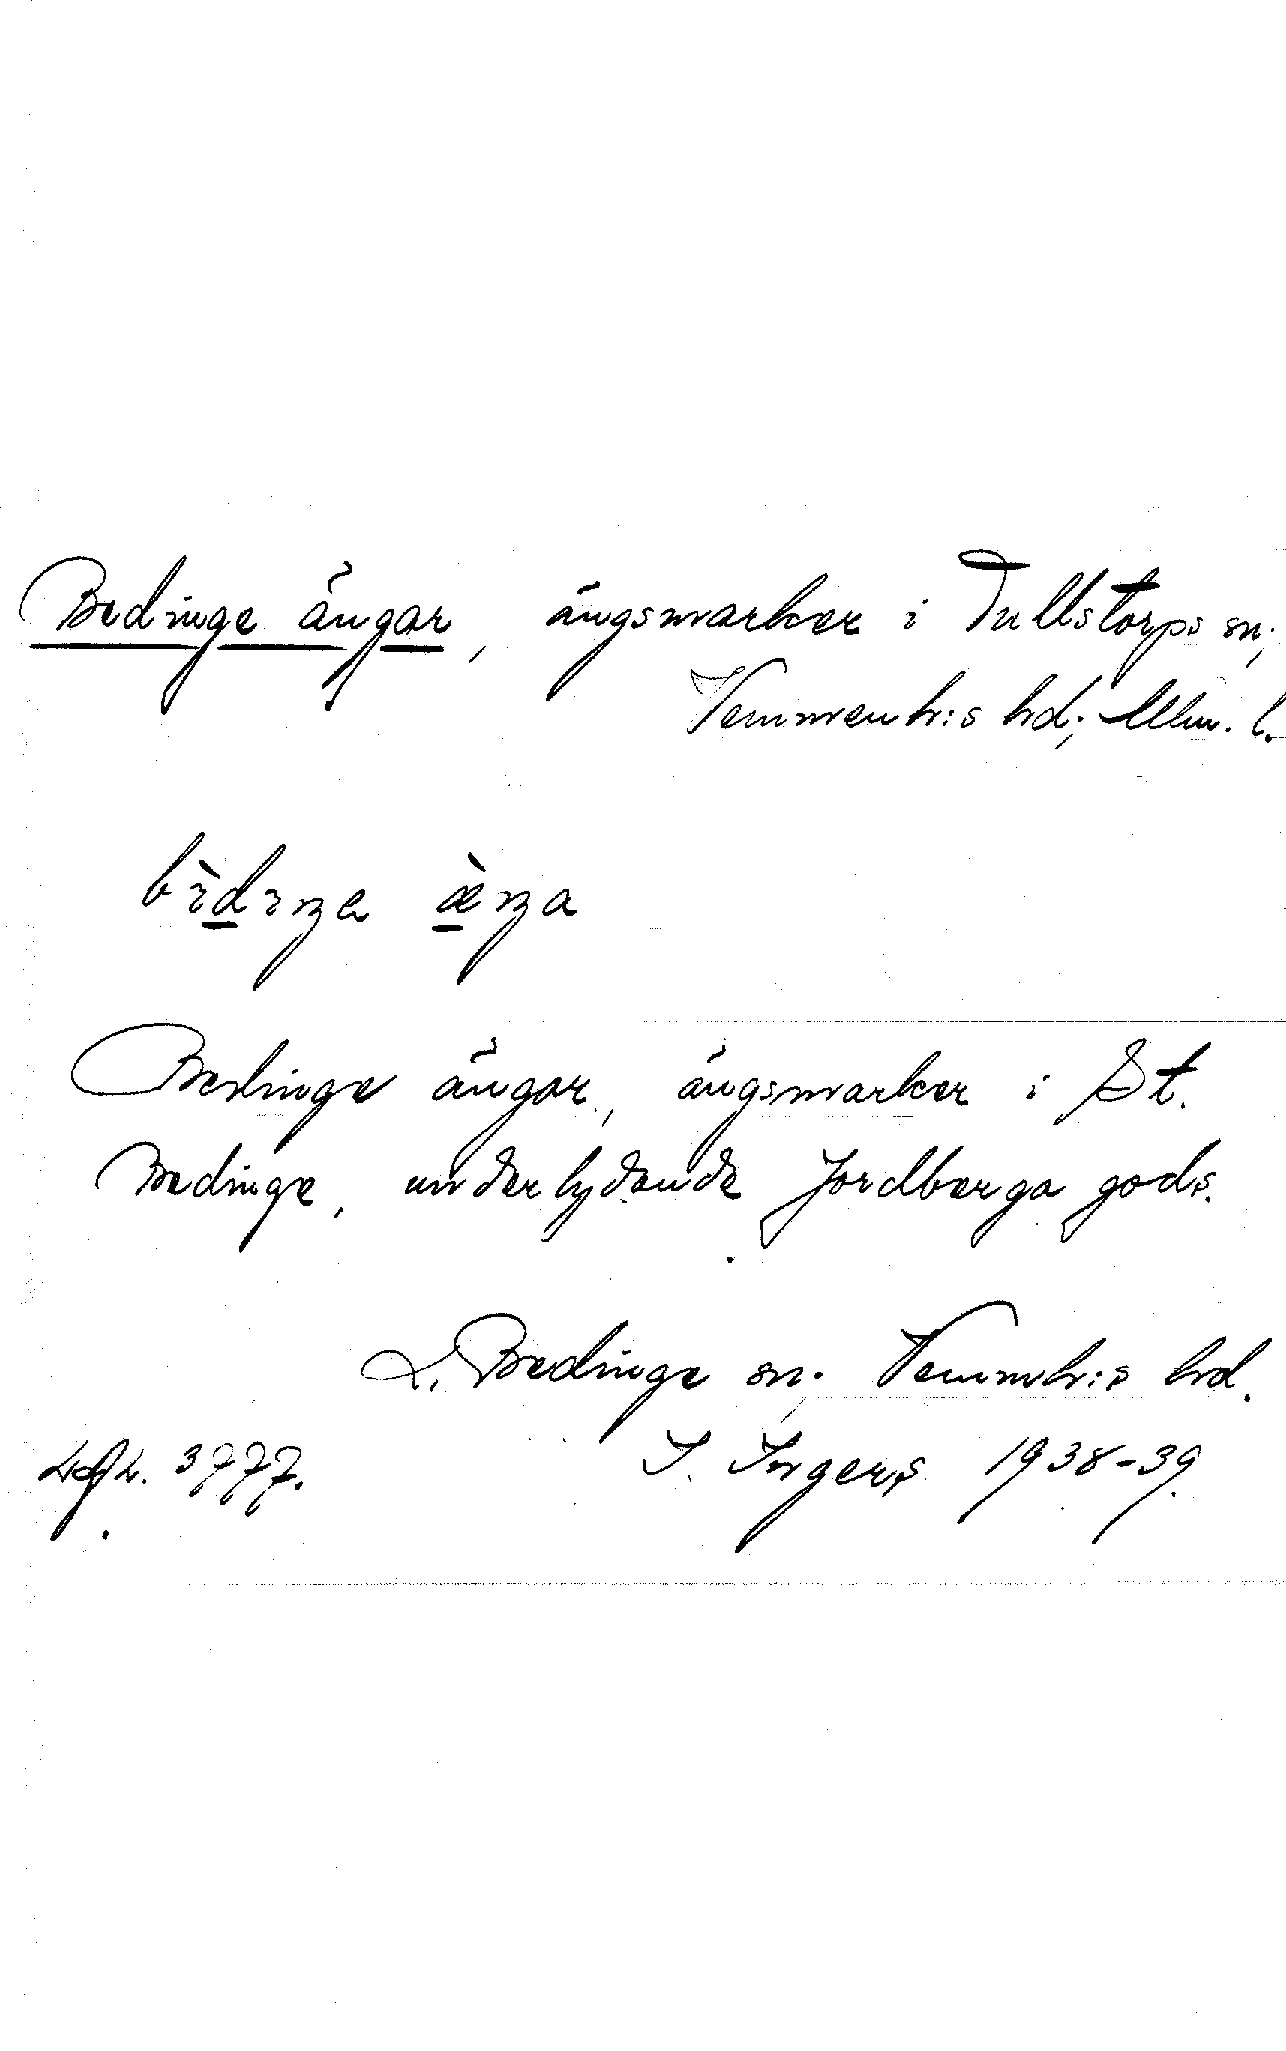 Bedinge ängar, ängsmarker i Tullstorps sn,
Vemmenh:s hd, Mlm. l.
bìdıŋa æ̀ŋa
Bedinge ängar, ängsmarker i St.
Bedinge, underlydande Jordberga gods.
L. Bedinge sn. Vemmh:s hd.
3777. I. Ingers 1938-39.